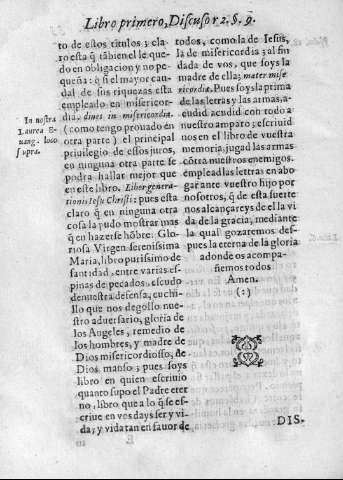 Libro primero, Discurso 12. §. 9.
to de estos titulos; y cla-
ro està q̃ tãbien el le que-
do en obligacion y no pe-
queña: q̃ si el mayor cau-
dal de sus riquezas esta
empleado en misericor-
dia. diues in misericordia.
(como tengo prouado en
otra parte) el principal
priuilegio de estos juros,
en ninguna otra parte se
podra hallar mejor que
en este libro. Liber genera-
tionis Iesu Christi: pues esta
claro q̃ en ninguna otra
cosa la pudo mostrar mas
q̃ en hazerse hõbre. Glo-
riosa Virgen serenissima
Maria, libro purissimo de
santidad, entre varias es-
pinas de pecados, escudo
de nuestra defensa, cuchi-
llo que nos degollo nue-
stro aduersario, gloria de
los Angeles, remedio de
los hombres, y madre de
Dios misericordioso, de
Dios manso; pues soys
libro en quien escriuio
quanto supo el Padre eter
no, libro que a lo q̃ se es-
criue en vos days ser y vi-
da; y vida tan en fauor de
In nostra
Laurea E-
uang. loco
supra.
todos, como la de Iesus,
la de misericordia; al fin
dada de vos, que soys la
madre de ella; mater mise
ricordiæ. Pues soys la prima
de las letras y las armas, a-
cudid acudid con todo a
nuestro amparo; escriuid
nos en el libro de vuestra
memoria, jugad las armas
cõtra nuestros enemigos.
emplead las letras en abo-
gar ante vuestro hijo por
nosotros, q̃ de esta suerte
nos alcançareys de el la vi
da de la gracia, mediante
la qual gozaremos des-
pues la eterna de la gloria
adonde os acompa-
ñemos todos
Amen.
(:)
DIS-